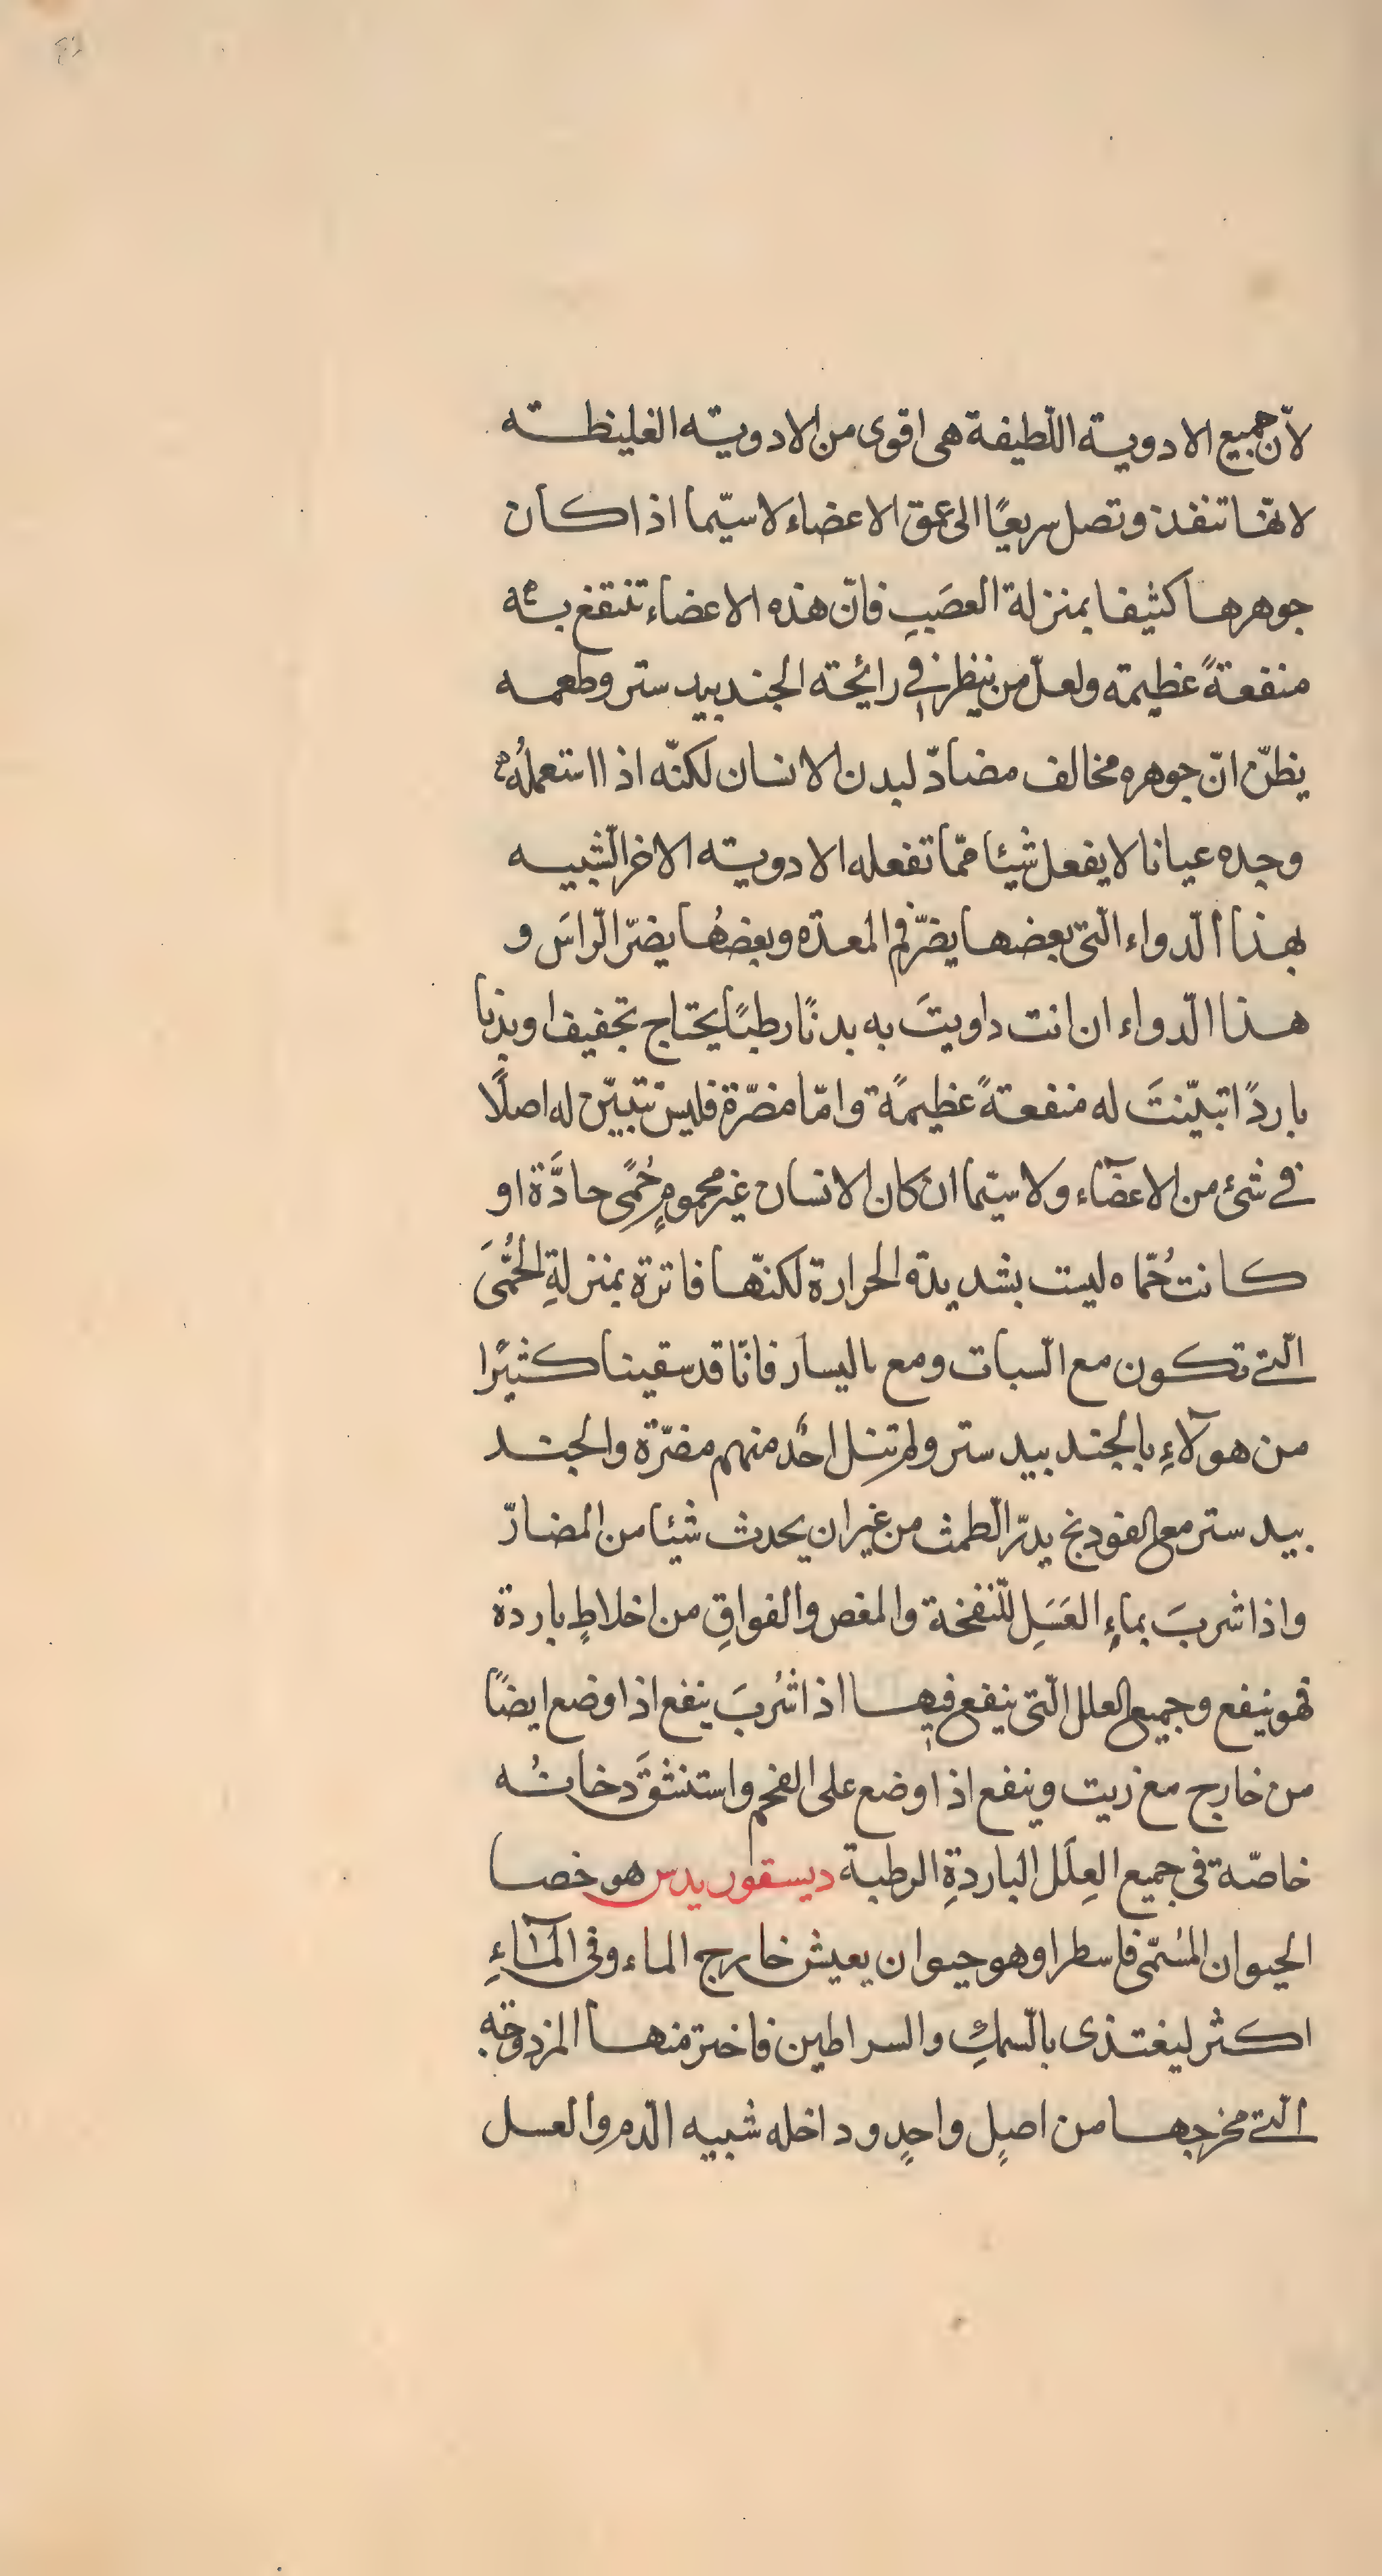 لانّ جميع الادوية اللّطيفة هى اقوى من الادوية الغليظة
لانّها تنفذ وتصل سريعًا الى عمق الاعضاء لا سيّما اذا كان
جوهرها كثيفا بمنزلة العصَبِ فانّ هذه الاعضاء تنتفع به
منفعةً عظيمة ولعلّ من ينظر فى رائحة الجندبيد ستر وطعمه
يظنّ انّ جوهره مخالف مضادّ لبدن الانسان لكنّه اذا استعملهُ
وجده عيانا لا يفعل شيئا ممّا تفعله الادوية الاخر الشّبيه
بهذا الّدواء الّتى بعضها يضرّ فم المعدة وبعضُها يضرّ الّراسَ و
هذا الّدواء ان انت داويتَ به بدنًا رطبًا يحتاج تجفيفا وبدنا
باردًا تبيّنتَ له منفعةً عظيمًة وامّا مضرّة فليس تتبيّن له اصلًا
فى شئ من الاعضآء ولا سيّما ان كان الانسان غير محمومٍ حُمًى حادَّة او
كانت حُمّاه ليست بشديدة الحرارة لكنّها فاترة بمنزلةِ الحُمَّىَ
الّتى تكون مع الّسبات ومع اليسار فانّا قد سقينا كثيرًا
من هولآءِ بالجند بيد ستر ولم تنل احدٌ منهم مضرّة والجند
بيد ستر مع الفودنج يدرّ الّطمث من غير ان يحدث شيئا من المضارّ
واذا شربَ بماءِ العَسَلِ للّنفخة والمغص والفواقِ من اخلاطٍ باردة
فهو ينفع وجميع العلل الّتى ينفع فيها اذا شُربَ ينفع اذا وضع ايضًا
من خارج مع زيت وينفع اذا وضع على الفحم واستنشقَ دخانُه
خاصّة فى جميع العِلَل الباردةِ الرطبة ديسقوريدس هو خصا
الحيوان المُسّمى فاسطرا وهو حيوان يعيش خارج الماء وفى المآءِ
اكثر ليغتذى بالّسمكِ والسراطين فاختر منها المزدوجة
الّتى مخرجها من اصلٍ واحدٍ وداخله شبيه الّدم والعسل